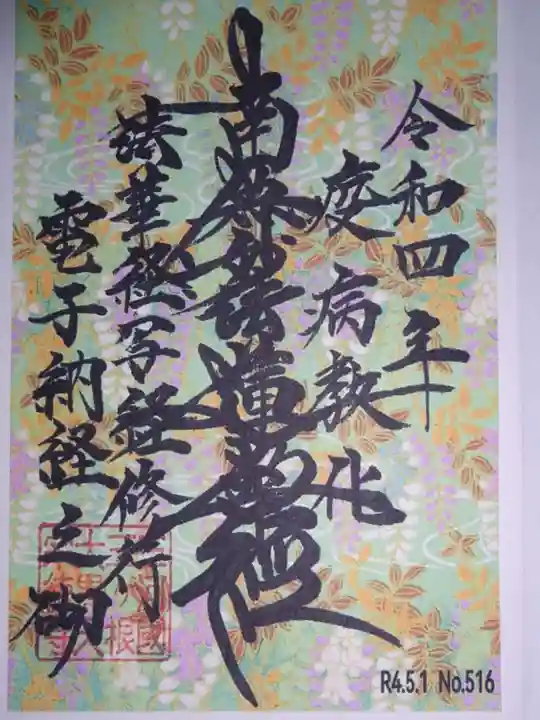 令和四年
疫病教化
南無妙法蓮華経
法華経写経修行
電子納経之御
R4.5.1 No.516